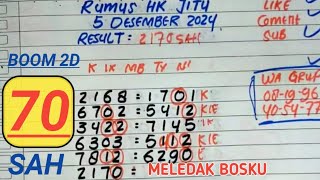 Rumus HK JITU
5 DESEMBER 2024
RESULT : 2170 SAH
LIKE
Coment
SUB
BOOM 2D
70
SAH
K IK MB TY N
WA GRUP
08-19-96
40-54-77
2168 : 1701 K
6702 : 5412 K/E
3422 : 7145 K
6303 : 5112 K/E
7812 : 6290 E
2170 =
MELEDAK BOSKU